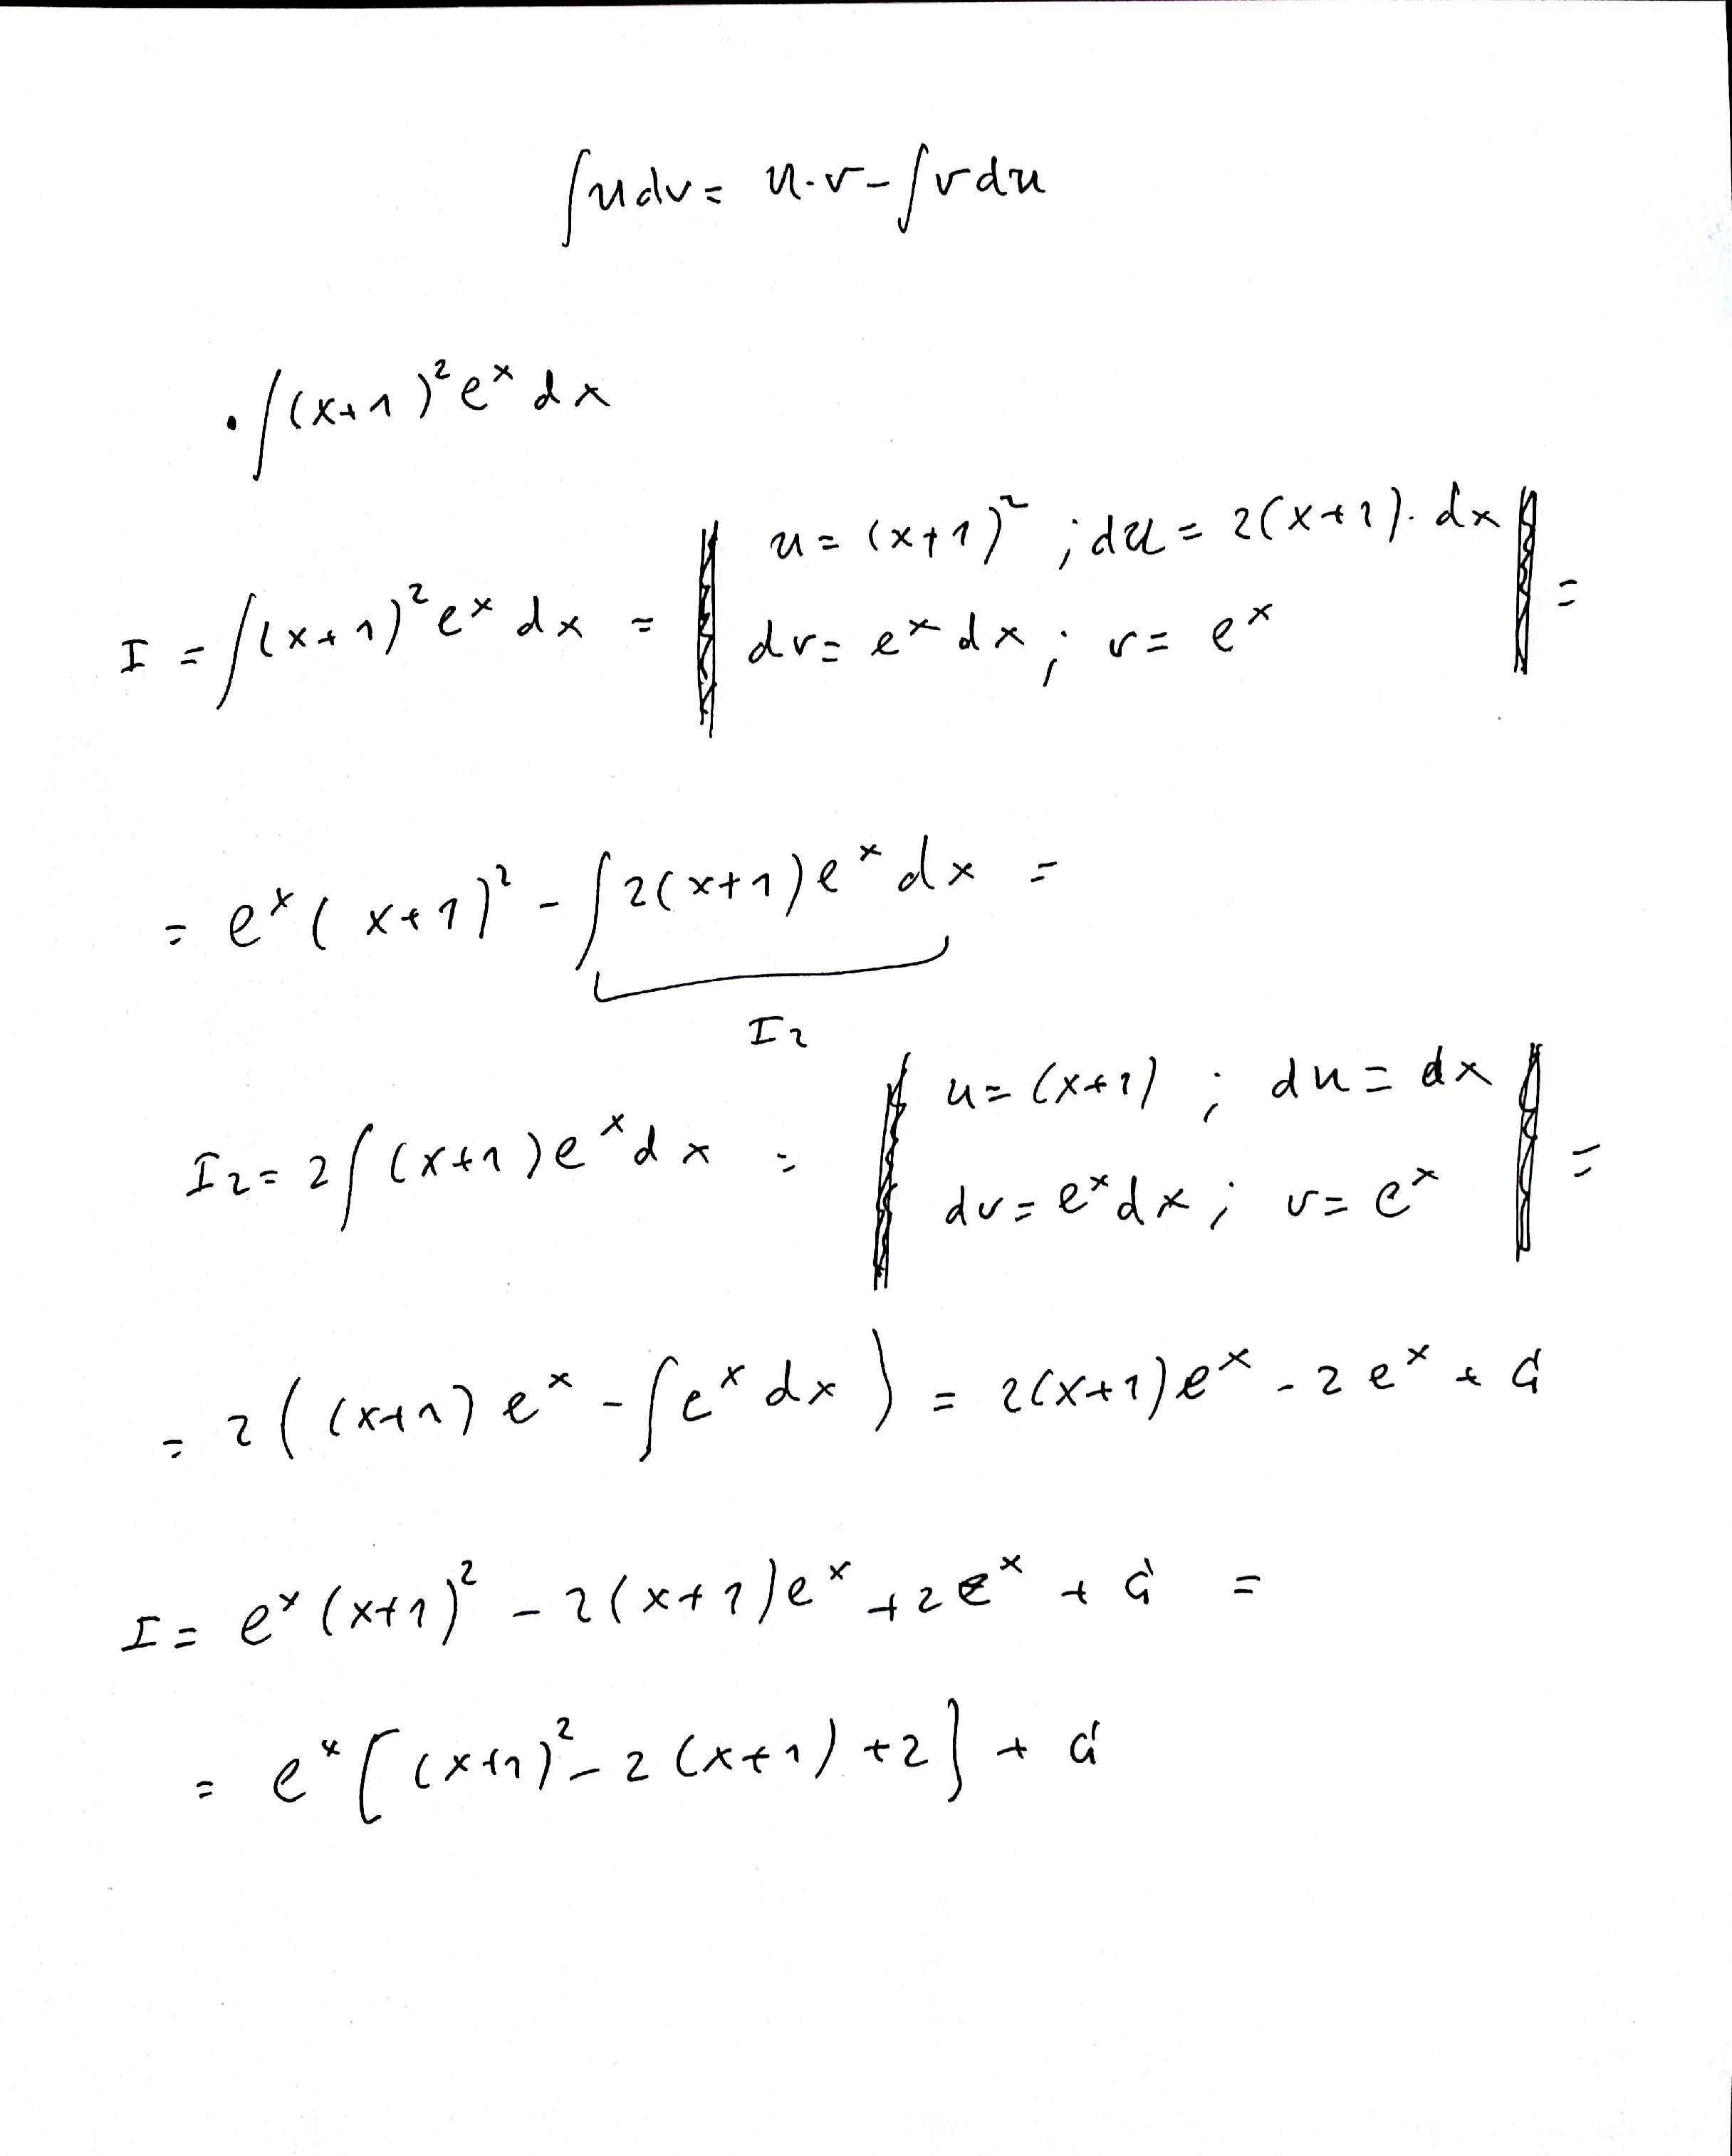 ∫udv = u·v-∫vdu
• ∫(x+1)²eˣdx
I = ∫(x+1)²eˣdx = ‖ u = (x+1)² ; du = 2(x+1)·dx ‖ =
dv = eˣdx ; v = eˣ
= eˣ(x+1)² - ∫2(x+1)eˣdx =
I₂
I₂ = 2∫(x+1)eˣdx = ‖ u = (x+1) ; du = dx ‖ =
dv = eˣdx ; v = eˣ
= 2((x+1)eˣ - ∫eˣdx) = 2(x+1)eˣ - 2eˣ +
I = eˣ(x+1)² - 2(x+1)eˣ + 2eˣ + =
= eˣ[(x+1)² - 2(x+1) + 2] +